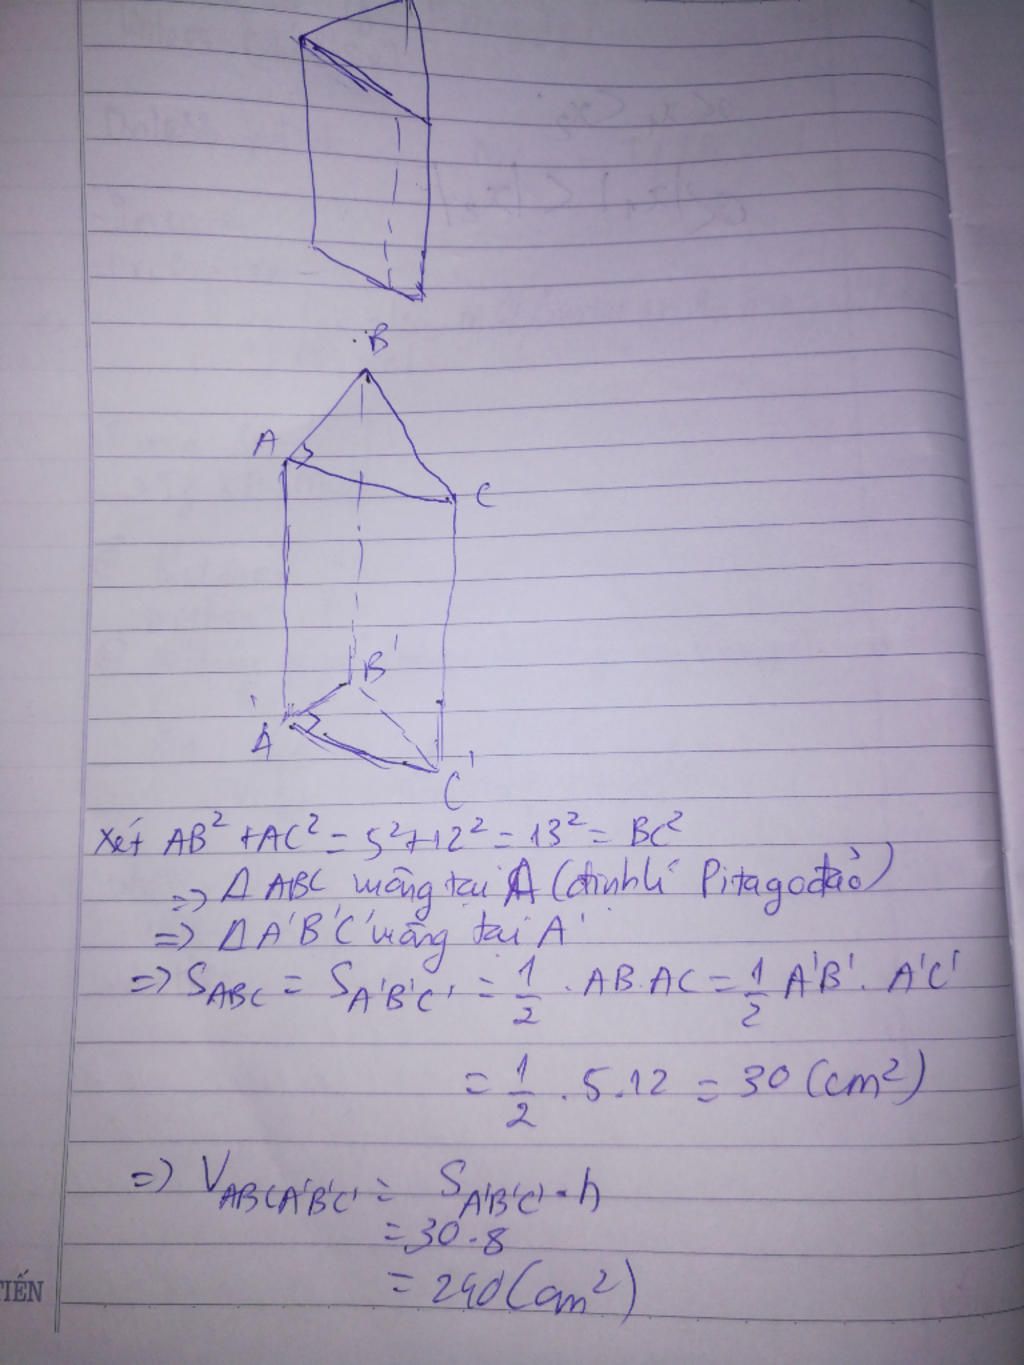 B
A
C
B'
A'
C'
Xét AB² + AC² = 5² + 12² = 13² = BC²
=> Δ ABC vuông tại A (định lí Pitago đảo)
=> Δ A'B'C' vuông tại A'
=> S_ABC = S_A'B'C' = 1/2 . AB.AC = 1/2 A'B' . A'C'
= 1/2 . 5.12 = 30 (cm²)
=> V_ABCA'B'C' = S_A'B'C' . h
= 30.8
= 240 (cm²)
TIẾN